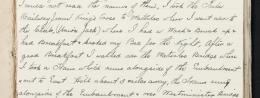 must not read the names of this, I took the Tube
Railway, and Kings Cross to Waterloo where I went over to
the Club, (Union Jack) where I had a Wash & Brush up &
had Breakfast & booked my Bed for the Night. After a
good Breakfast I walked over the Waterloo Bridge where
I took a Tram which runs alongside of the Embankment
out to East Hill about 5 miles away, the Trams run
alongside of the Embankment & over Westminster Bridge